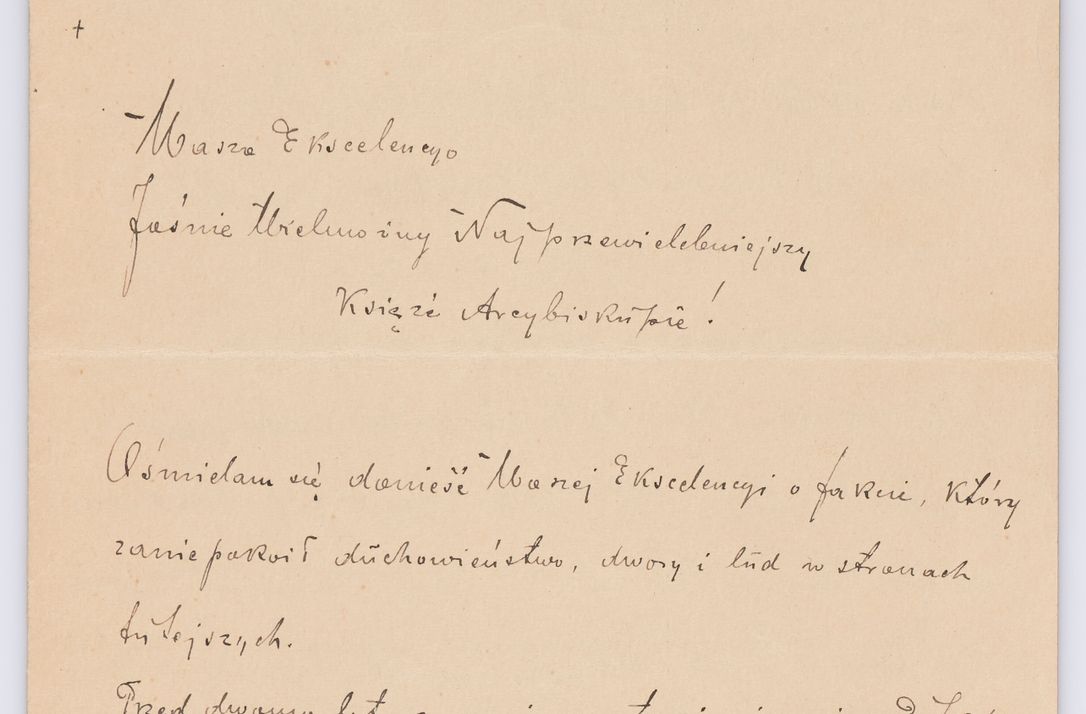 +
Wasza Ekscelencyo
Jaśnie Wielmożny Najprzewielebniejszy
Książe Arcybiskupie!
Ośmielam się donieść Waszej Ekscelencyi o fakcie, który
zaniepokoił duchowieństwo, dwory i lud w stronach
tutejszych.
Przed dwoma